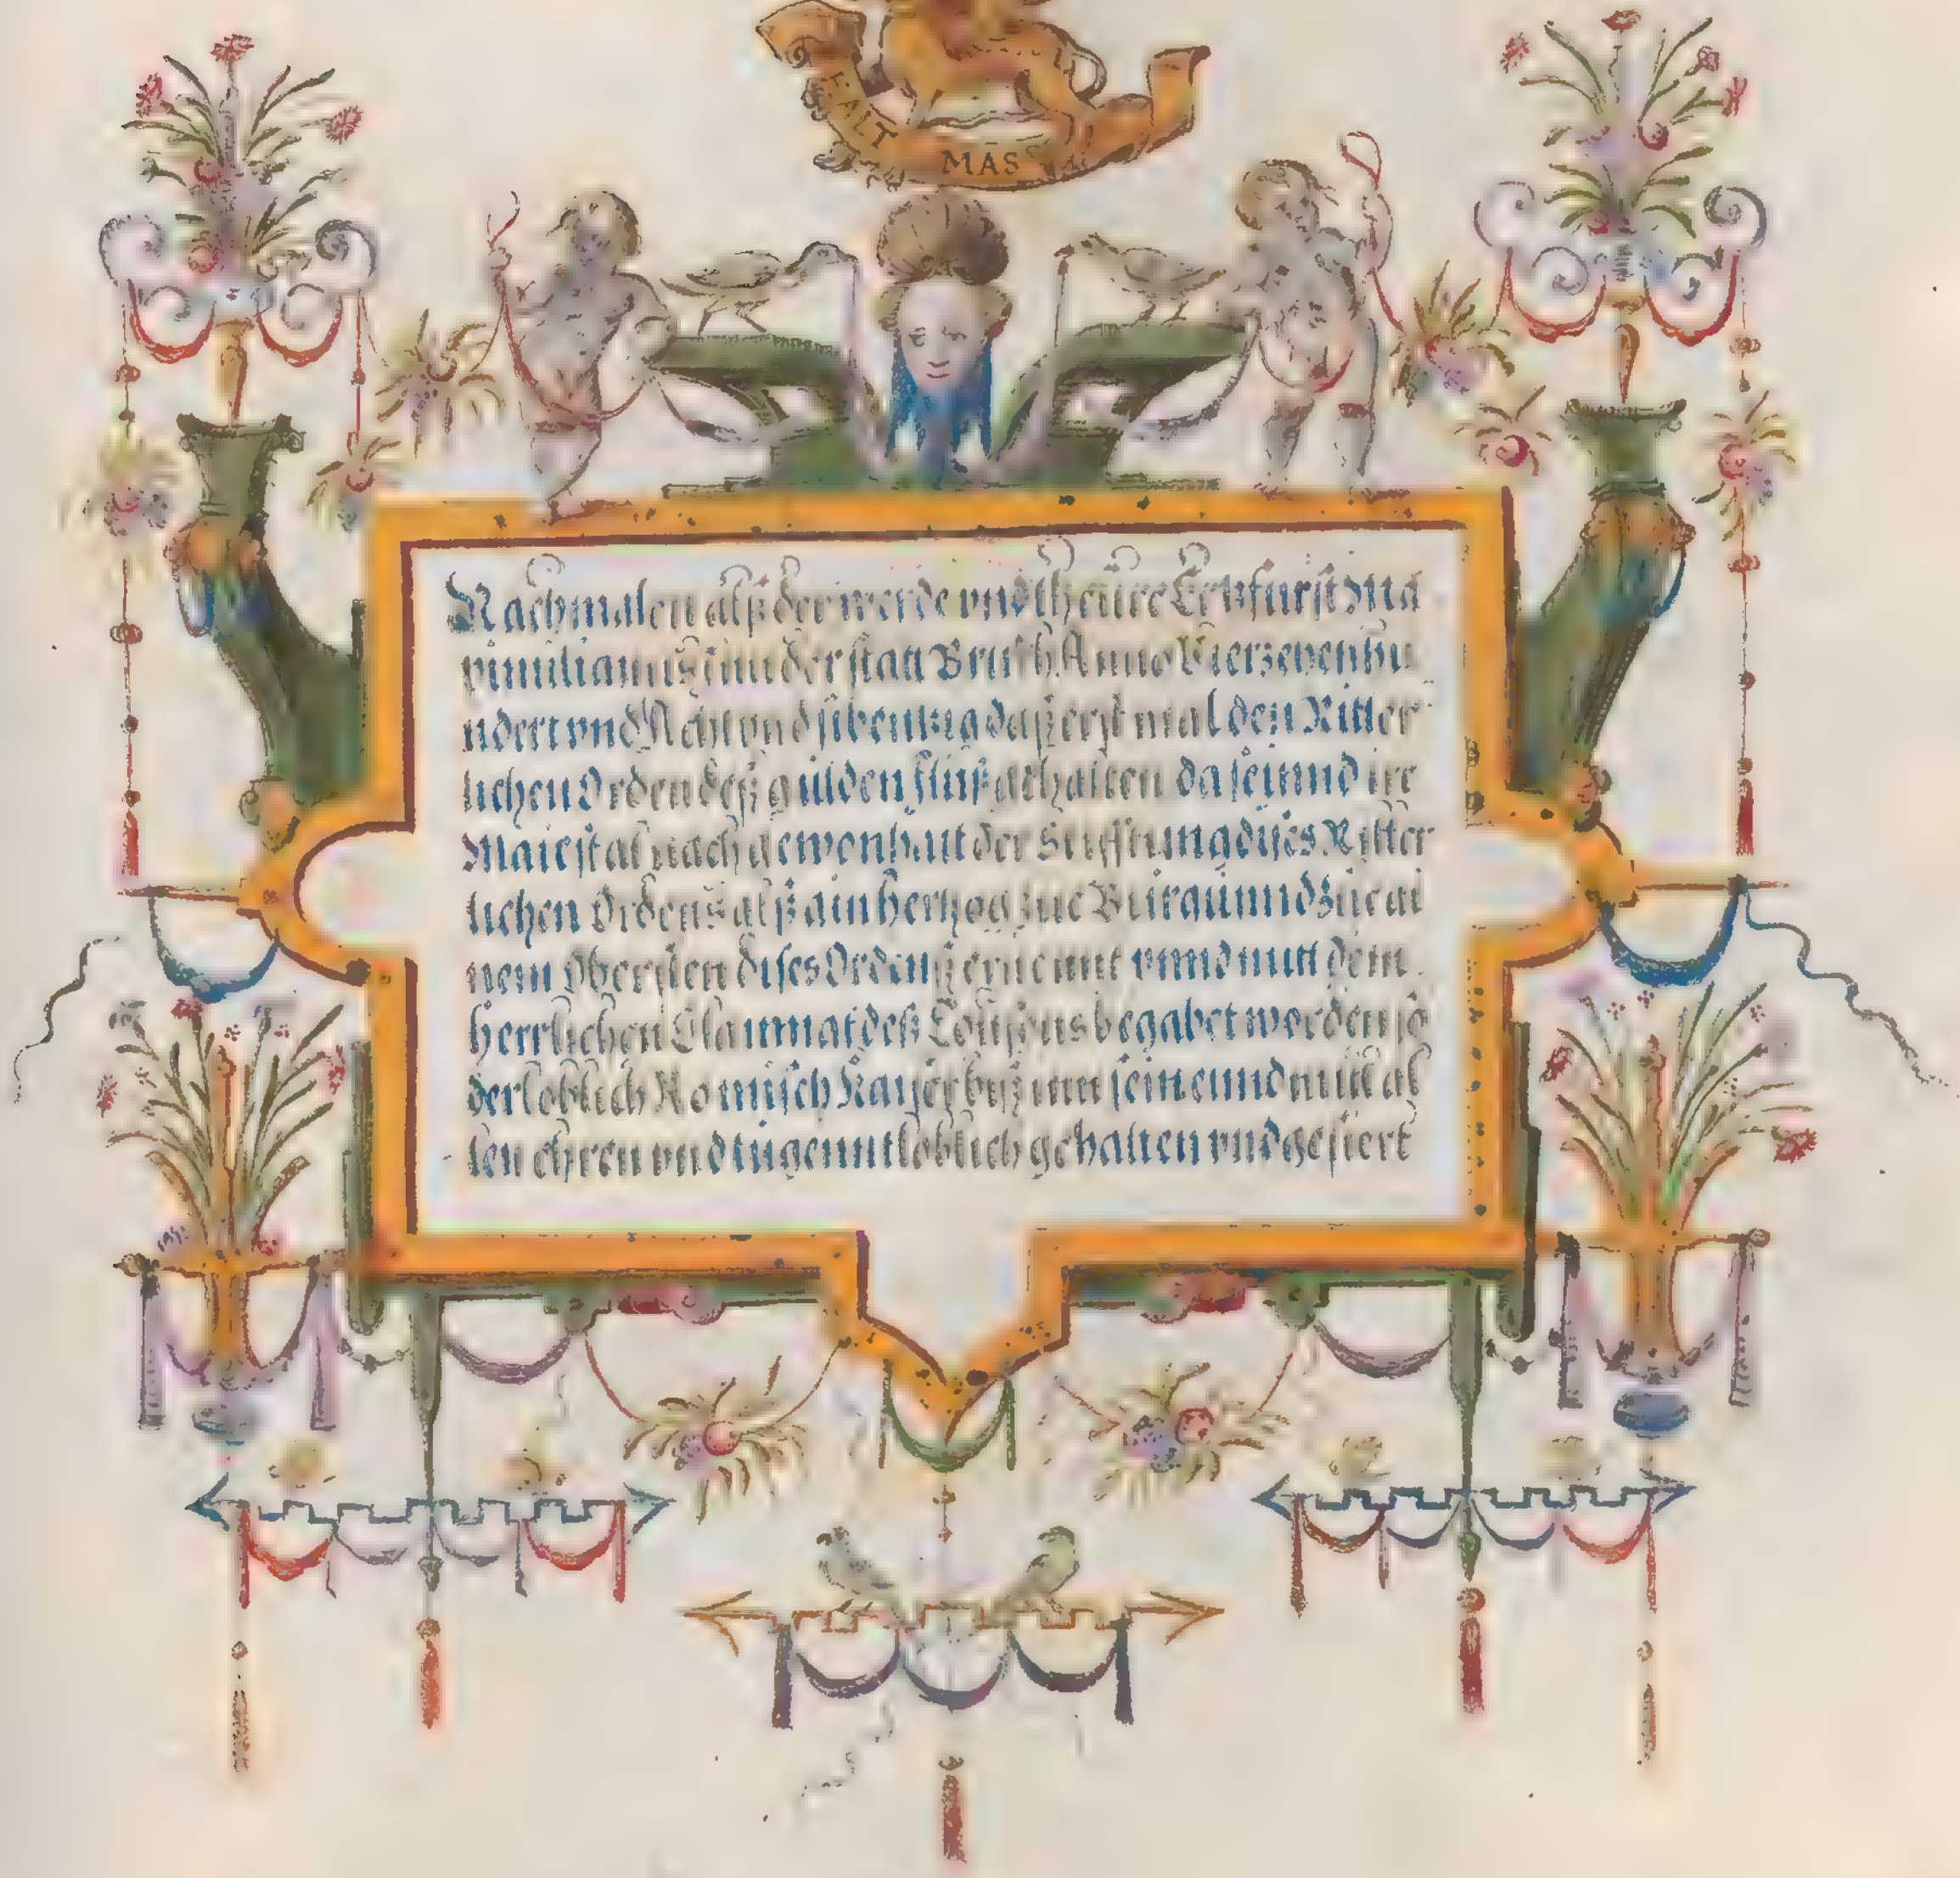 HALT MAS
Nachmalen alß der werde vnd theure Ertzfürst Ma
ximilianus inn der statt Brusch Anno Vierzehenhu
ndert vnd Acht vnd sibentzig daß erst mal den Ritter
lichen Orden deß gulden flüß gehalten da seinnd ire
Maiestat nach gewonhait der Stifftung dises Ritter
lichen Ordens alß ain hertzog zue Burgunnd zue ai
nem Obersten dises Ordenß ernennt vnnd mitt dem
herrlichen Clainnat deß begabet worden so
der loblich Romisch Kayser biß inn sein ennd mitt al
len ehren vnd tugennt loblich gehalten vnd gefiert